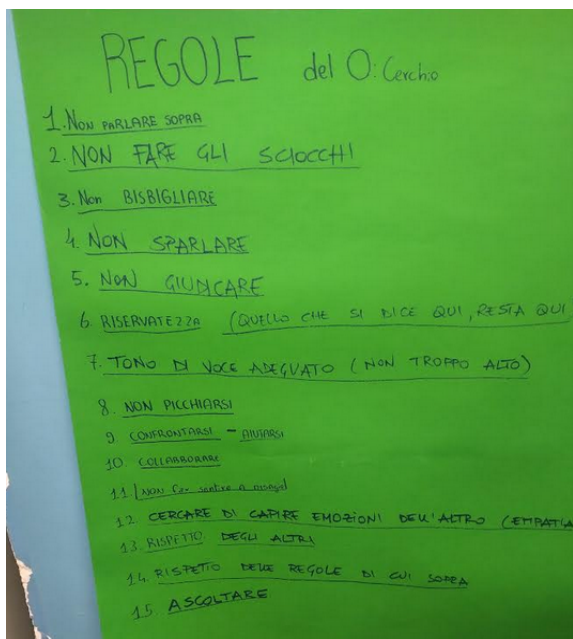 REGOLE del O: Cerchio
1. NON PARLARE SOPRA
2. NON FARE GLI SCIOCCHI
3. Non BISBIGLIARE
4. NON SPARLARE
5. NON GIUDICARE
6. RISERVATEZZA (QUELLO CHE SI DICE QUI, RESTA QUI
7. TONO DI VOCE ADEGUATO (NON TROPPO ALTO)
8. NON PICCHIARSI
9 CONFRONTARSI - AIUTARSI
10. COLLABORARE
11. NON far sentire a
12. CERCARE DI CAPIRE EMOZIONI DELL'ALTRO (EMPATIA
13. RISPETTO DEGLI ALTRI
14. RISPETTO DELLE REGOLE DI CUI SOPRA
15 ASCOLTARE